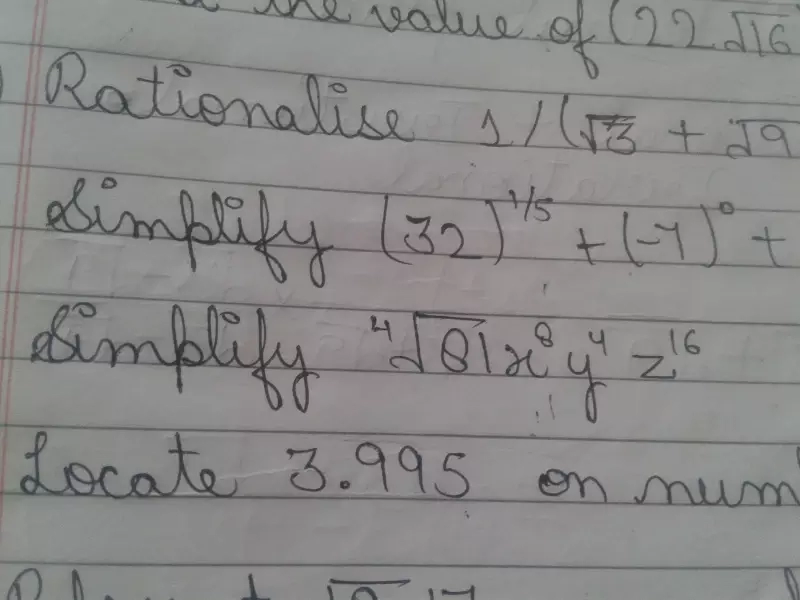 the value of (22√16
Rationalise 1/(√3 + √9
Simplify (32)^1/5 + (-7)^0 +
Simplify ⁴√81x^8 y^4 z^16
Locate 3.995 on num